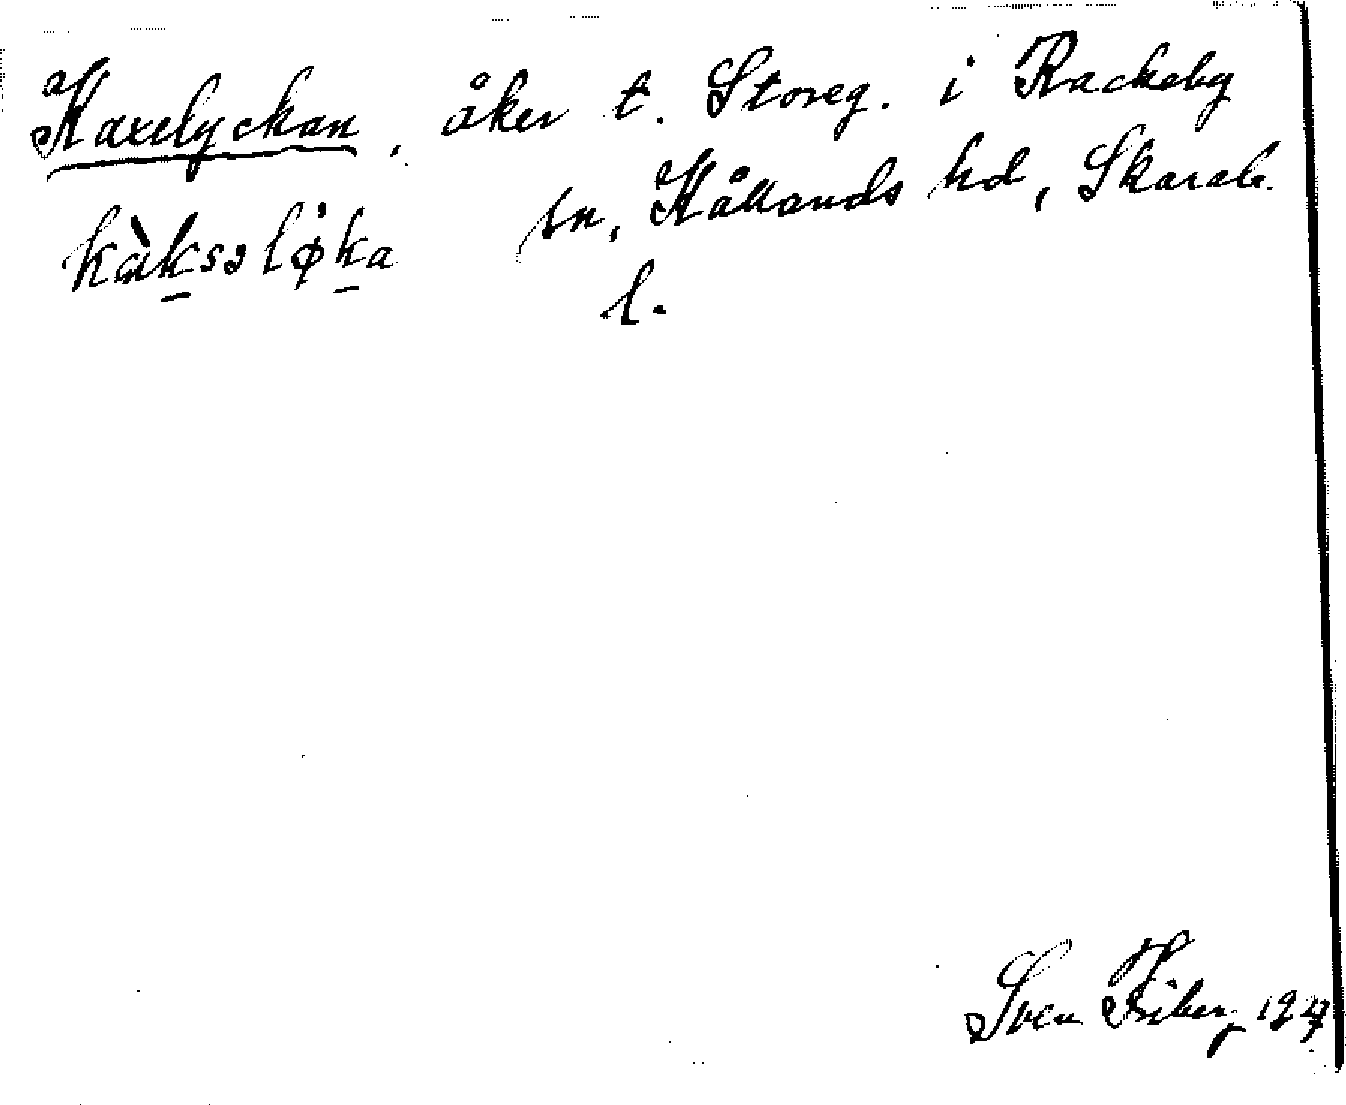 Kaxelyckan, åker t. Storeg. i Rackeby
sn, Kållands hd, Skarab.
l.
kàksəløka
Sven Friberg